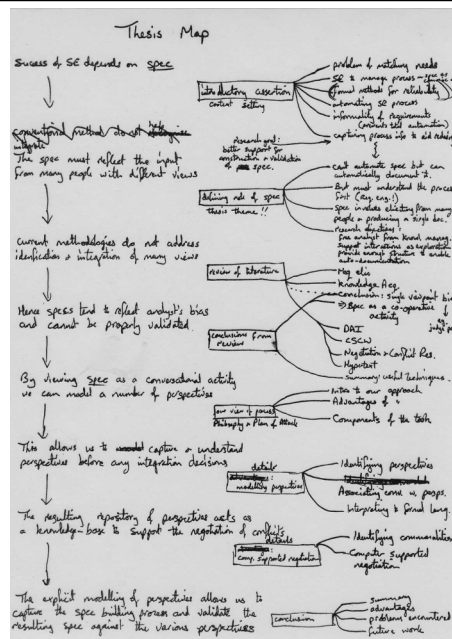 Thesis Map
Success of SE depends on spec
conventional methods do not
integrate
The spec must reflect the input
from many people with different views
Current methodologies do not address
identification & integration of many views
Hence specs tend to reflect analyst's bias
and cannot be properly validated.
By viewing spec as a conversational activity
we can model a number of perspectives
This allows us to capture & understand
perspectives before any integration decisions
The resulting repository of perspectives acts as
a knowledge-base to support the negotiation of conflicts
The explicit modelling of perspectives allows us to
capture the spec building process and validate the
resulting spec against the various perspectives
introductory assertion
context setting
problem of matching needs
SE to manage process
formal methods for reliability
automating SE process
informality of requirements
(prevents total automation)
capturing process info to aid
Research goal:
better support for
construction & validation
of spec.
defining role of spec
thesis theme!!
can't automate spec but can
automatically document it.
But must understand the process
first (Req. eng.!)
Spec involves eliciting from many
people & producing a single doc.
research objectives:
free analyst from knowl. manag.
Support interactions as exploration
provide enough structure to enable
auto-documentation
review of literature
Knowledge Acq.
conclusion: single viewpoint
⇒ Spec as a co-operative
activity
eg.
conclusions from
review
DAI
CSCW
Negotiation & Conflict Res.
Hypertext
Summary: useful techniques.
our view of process
Philosophy & Plan of Attack
Intro to our approach
Advantages of "
Components of the task
details
modelling perspectives
Identifying perspectives
Associating comv. w. persps.
Interpreting to formal lang.
details
comp. supported negotiation
Identifying commonalities
Computer supported
negotiation
conclusion
summary
advantages
problems encountered
future work